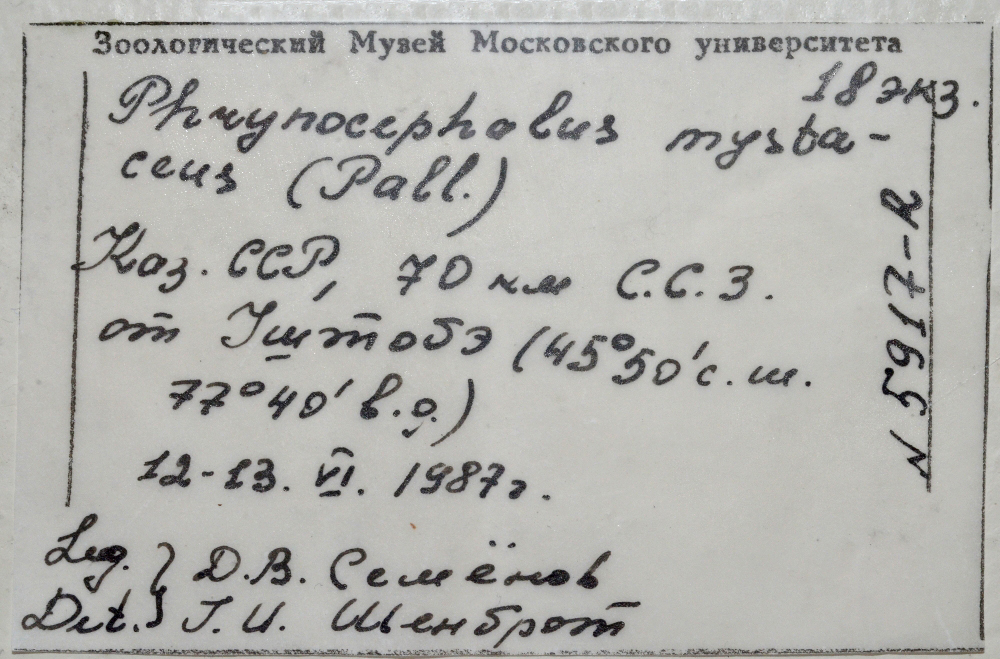 Зоологический Музей Московского университета
18 экз.
Phrynocephalus mysta-
ceus (Pall.)
Каз. ССР, 70 км С.С.З.
от Уштобэ (45°50' с.ш.
77°40' в.д.)
12-13. VI. 1987г.
Leg. } Д.В. Семёнов
Det. } Г.И. Шенброт
N 5917-R